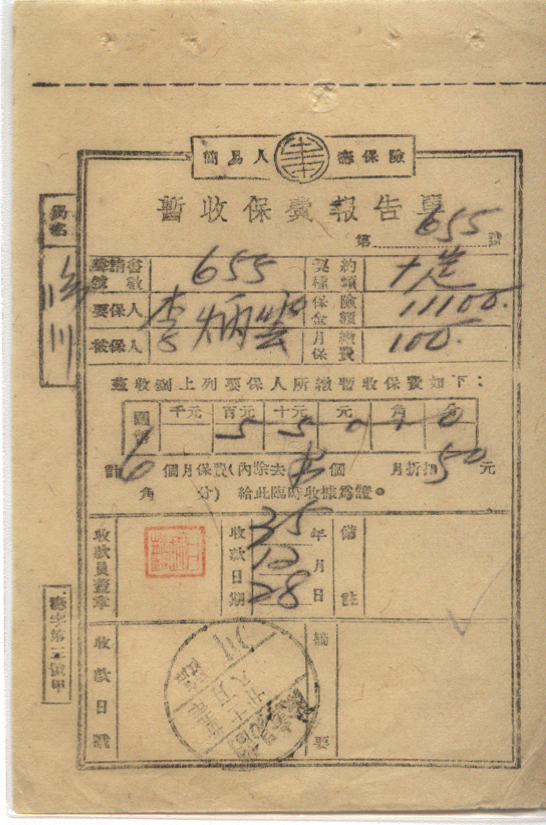 簡易人壽保險
暫收保費報告單
第 655 號
局名
聲請書號數 655 契約種類
要保人 李炳雲 保險金額 11100.
被保人 月繳保費 100.
茲收到上列要保人所繳暫收保費如下：
國幣 千元 百元 十元 元 角 分
5 5 0 0 0
計 6 個月保費（內除去 個 月折扣 50 元
角 分）給此臨時收據為證。
收款員蓋章 收款日期 35 年 12 月 28 日 備註
收款日戳 摘要
壽字第二號甲